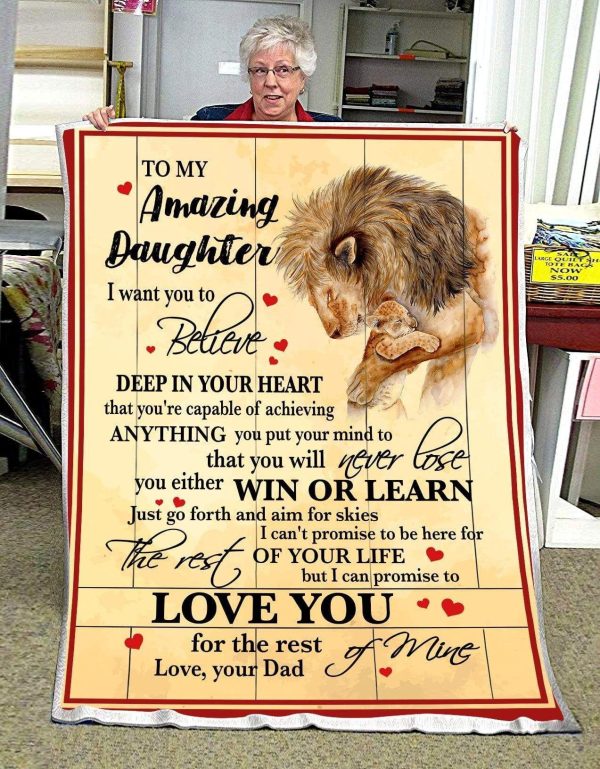 TO MY
Amazing
Daughter
I want you to
Believe
DEEP IN YOUR HEART
that you're capable of achieving
ANYTHING you put your mind to
that you will never lose
you either WIN OR LEARN
Just go forth and aim for skies
I can't promise to be here for
The rest OF YOUR LIFE
but I can promise to
LOVE YOU
for the rest of Mine
Love, your Dad
LARGE QUILT
TOTE BAGS
NOW
$5.00